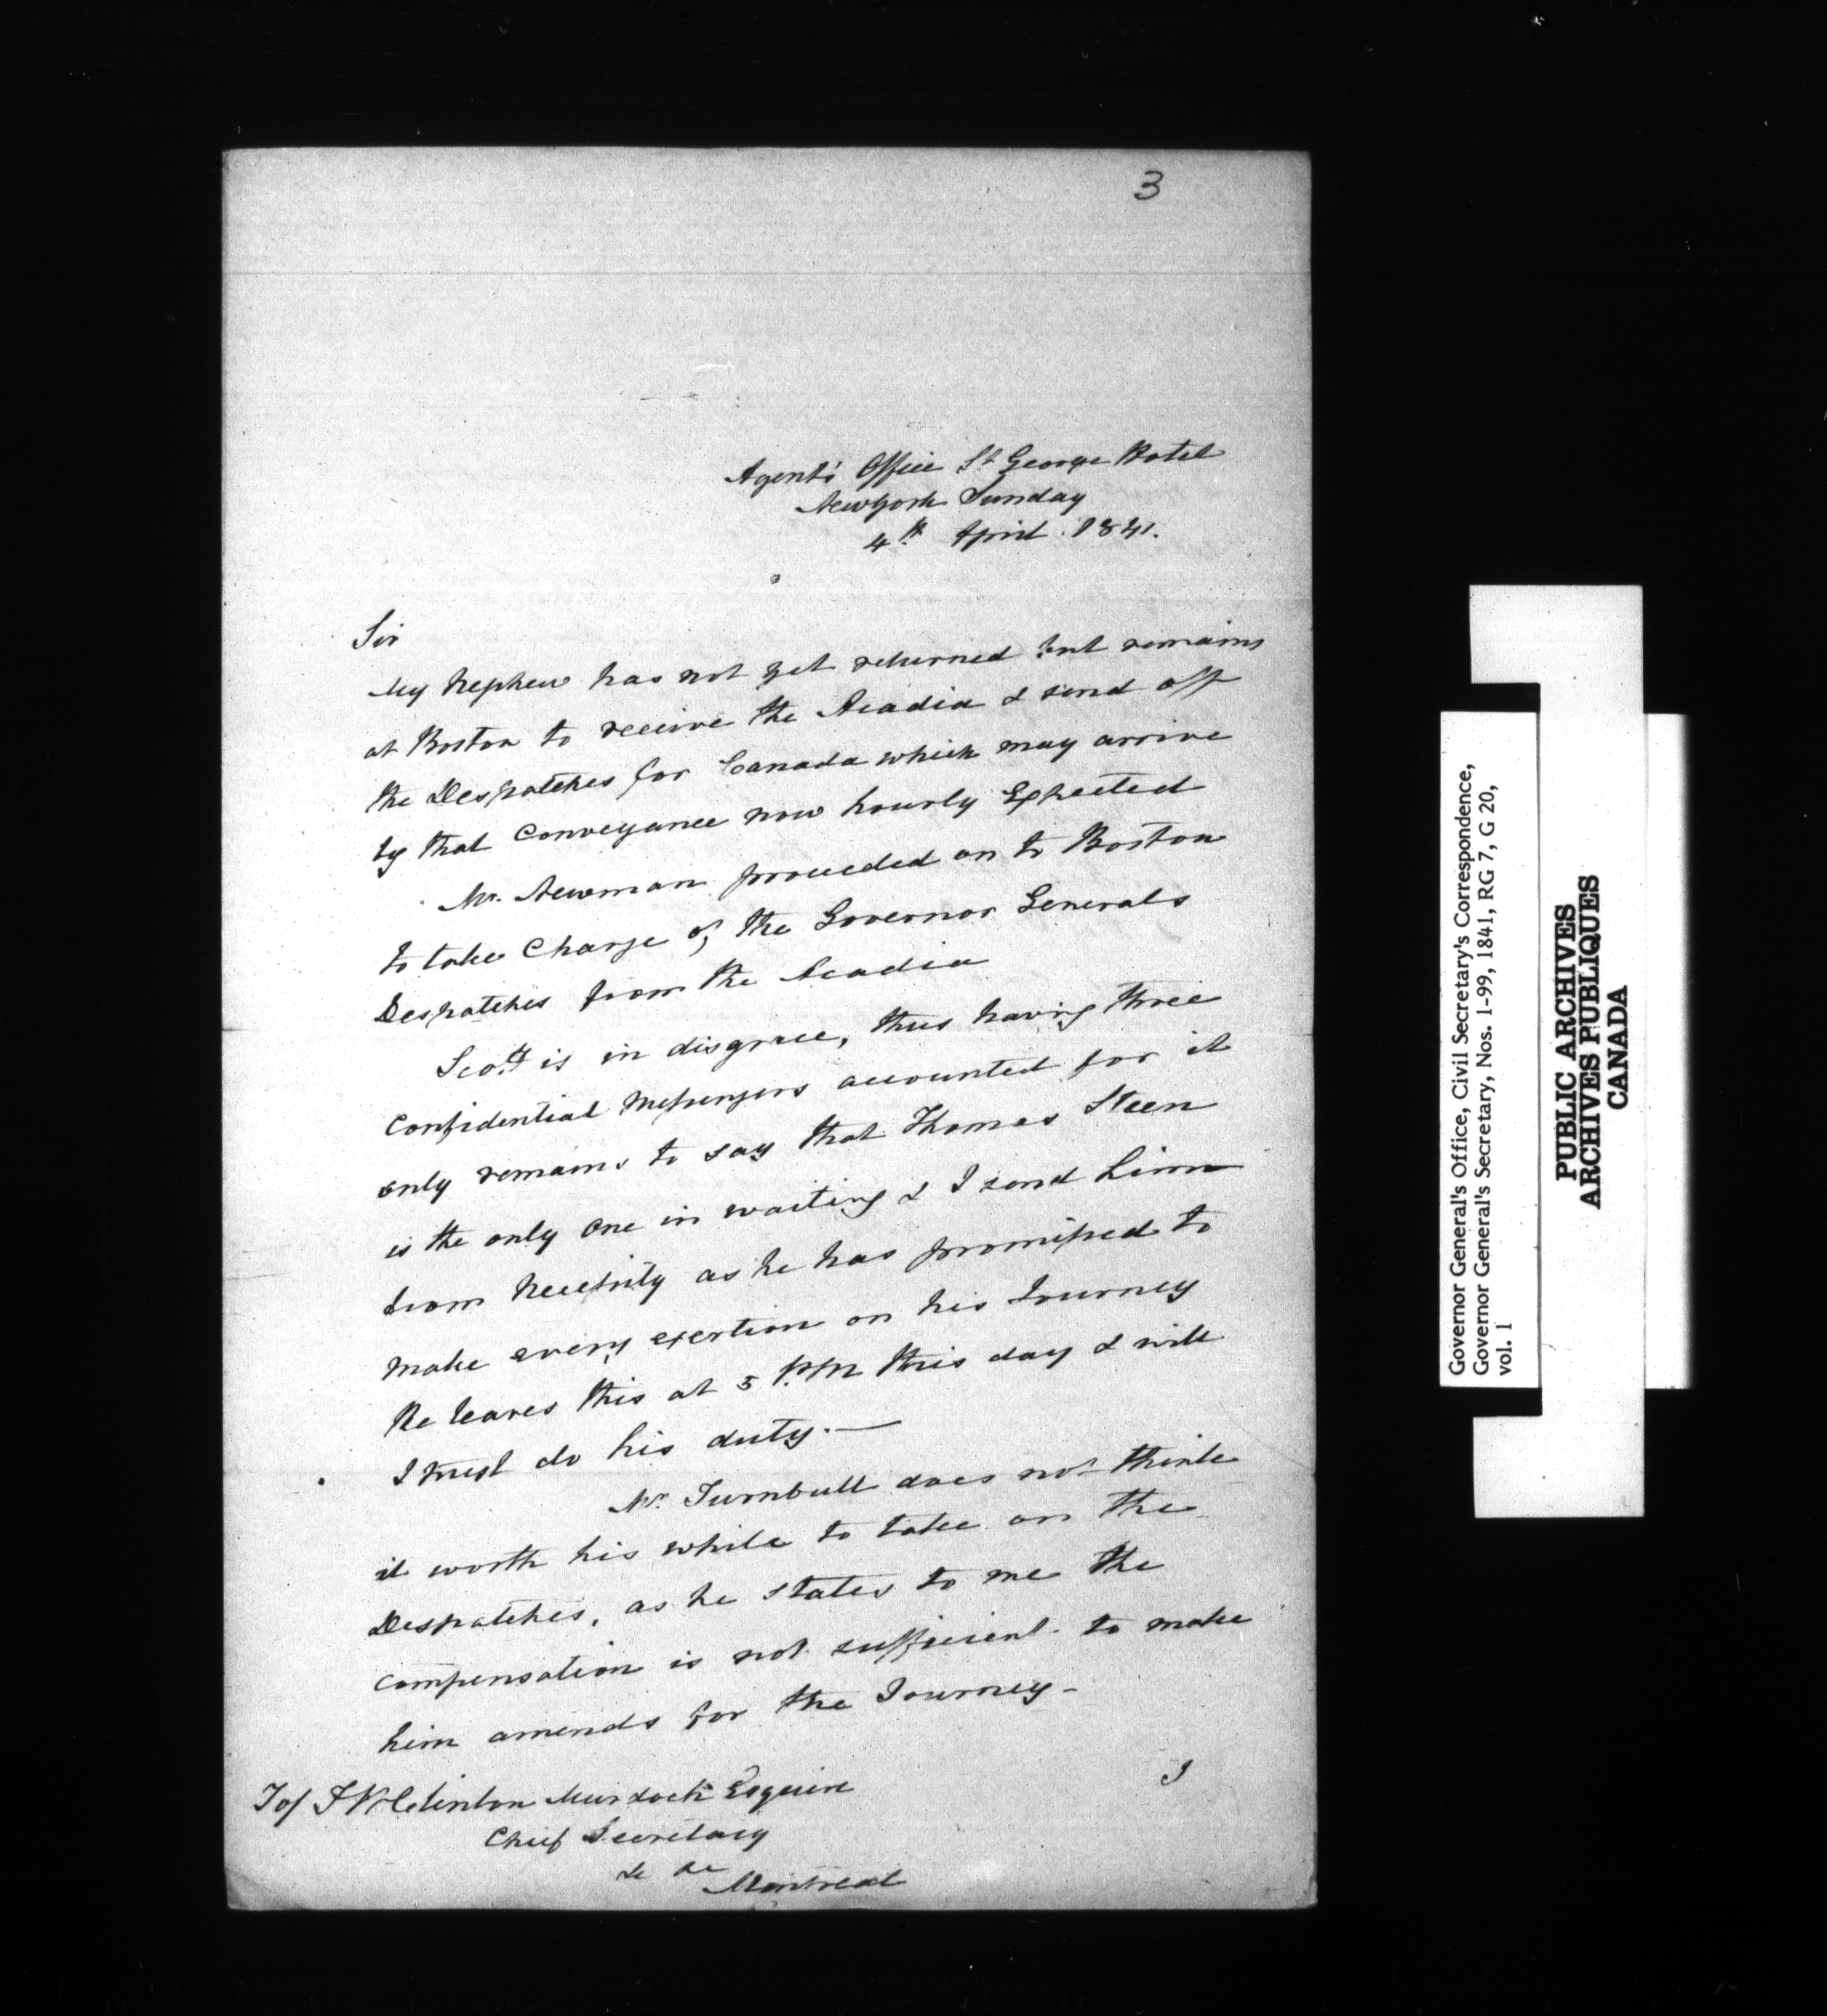 3
Agent's Office St George Hotel
Newyork Sunday
4th April 1841.
Sir
My Nephew has not yet returned but remains
at Boston to receive the Acadia & send off
the Despatches for Canada which may arrive
by that Conveyance now hourly Expected
Mr. Newman proceeded on to Boston
to take Charge of the Governor Generals
Despatches from the Acadia
Scott is in disgrace, thus having three
Confidential Messengers accounted for it
only remains to say that Thomas Steen
is the only one in waiting & I send him
from Necessity as he has promised to
make every exertion on his Journey
He leaves this at 5 P.M this day & will
I trust do his duty.—
Mr. Turnbull does not think
it worth his while to take on the
Despatches, as he states to me the
compensation is not sufficient to make
him amends for the Journey-
I
To/ T W Clinton Murdoch Esquire
Chief Secretary
&c &c
Montreal
Governor General's Office, Civil Secretary's Correspondence,
Governor General's Secretary, Nos. 1-99, 1841, RG 7, G 20,
vol. 1
PUBLIC ARCHIVES
ARCHIVES PUBLIQUES
CANADA